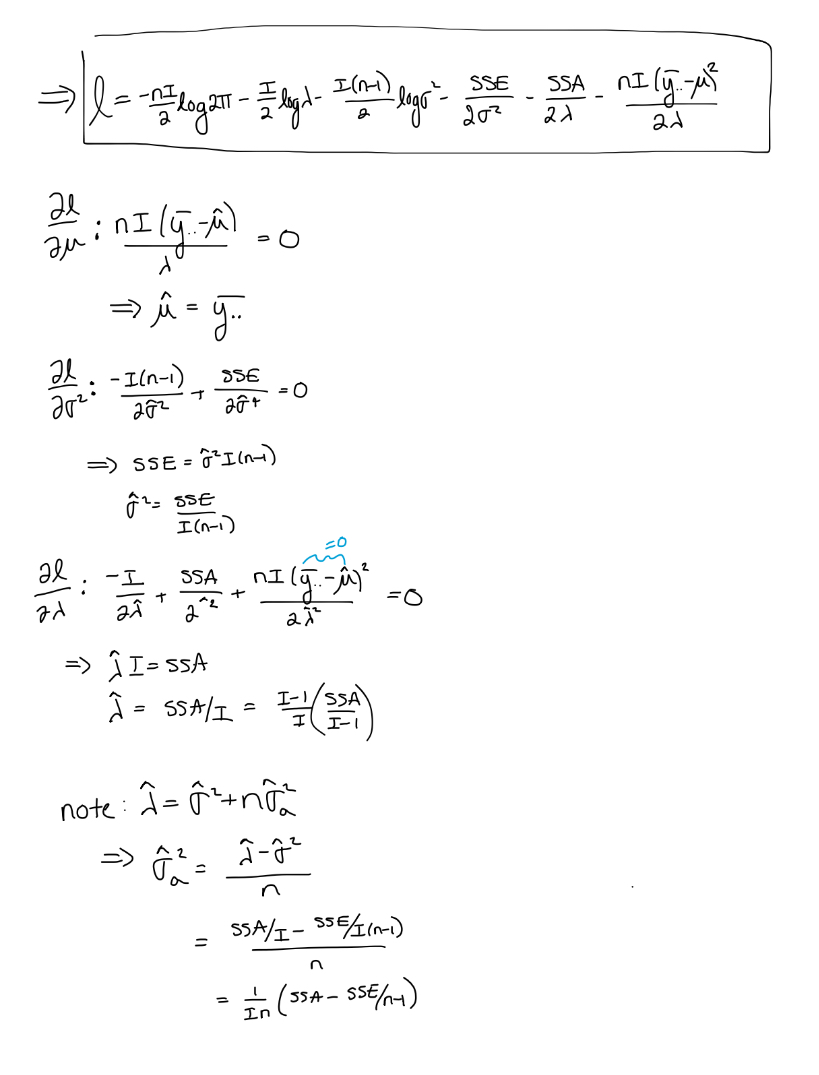 ⇒ l = -nI/2 log2π - I/2 logλ - I(n-1)/2 logσ² - SSE/2σ² - SSA/2λ - nI(ȳ..-μ)²/2λ
∂l/∂μ : nI(ȳ..-μ̂)/λ = 0
⇒ μ̂ = ȳ..
∂l/∂σ² : -I(n-1)/2σ̂² + SSE/2σ̂⁴ = 0
⇒ SSE = σ̂²I(n-1)
σ̂² = SSE/I(n-1)
=0
∂l/∂λ : -I/2λ̂ + SSA/2^² + nI(ȳ..-μ̂)²/2λ̂² = 0
⇒ λ̂I = SSA
λ̂ = SSA/I = I-1/I (SSA/I-1)
note: λ̂ = σ̂² + nσ̂ₐ²
⇒ σ̂ₐ² = λ̂-σ̂²/n
= SSA/I - SSE/I(n-1)/n
= 1/In (SSA - SSE/n-1)